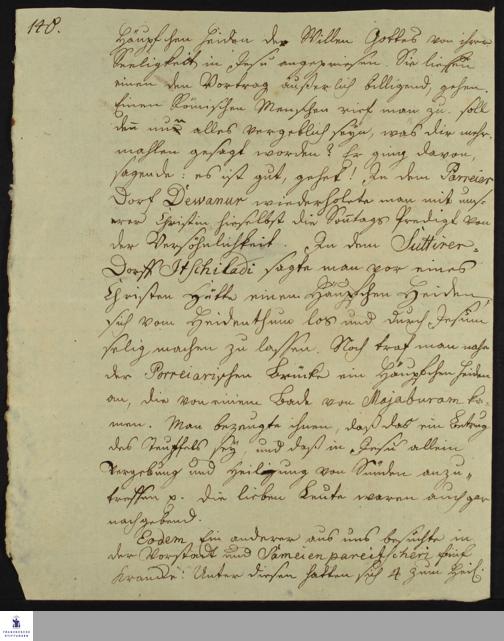 148.
Häupschen Heiden der Willen Gottes von ihrer
Seeligkeit in Jesu angepriesen. Sie liessen
einen den Vortrag äußerlich billigend, gehen.
Einen Römischen Menschen rief man zu: soll
den nun alles vergeblich seyn, was dir mehr-
mahlen gesagt worden? Er ging davon,
sagende: es ist gut, gehet! In dem Parreier
Dorf Dewanur wiederholete man mit unse-
rer Christin hieselbst die Sontags Predigt von
der Versöhnlichkeit. In dem Suttirer-
Dorff Itschiladi sagte man vor eines
Christen Hütte einem Häupschen Heiden,
sich vom Heidenthum los und durch Jesum
selig machen zu lassen. Noch traf man nahe
der Porreiarischen Brücke ein Häupschen Heiden
an, die von einem Bade von Majaburam ka-
men. Man bezeugte ihnen, daß das ein Betrug
des Teuffels sey, und daß in Jesu allein
Vergebung und Heiligung von Sünden anzu-
treffen p. Die lieben Leute waren auch gar
nachgebend.
Eodem Ein anderer aus uns besuchte in
der Vorstadt und Sameienpareitscheri fünf
Krancke. Unter diesen hatten sich 4 zum Heil.
FRANCKESCHE STIFTUNGEN